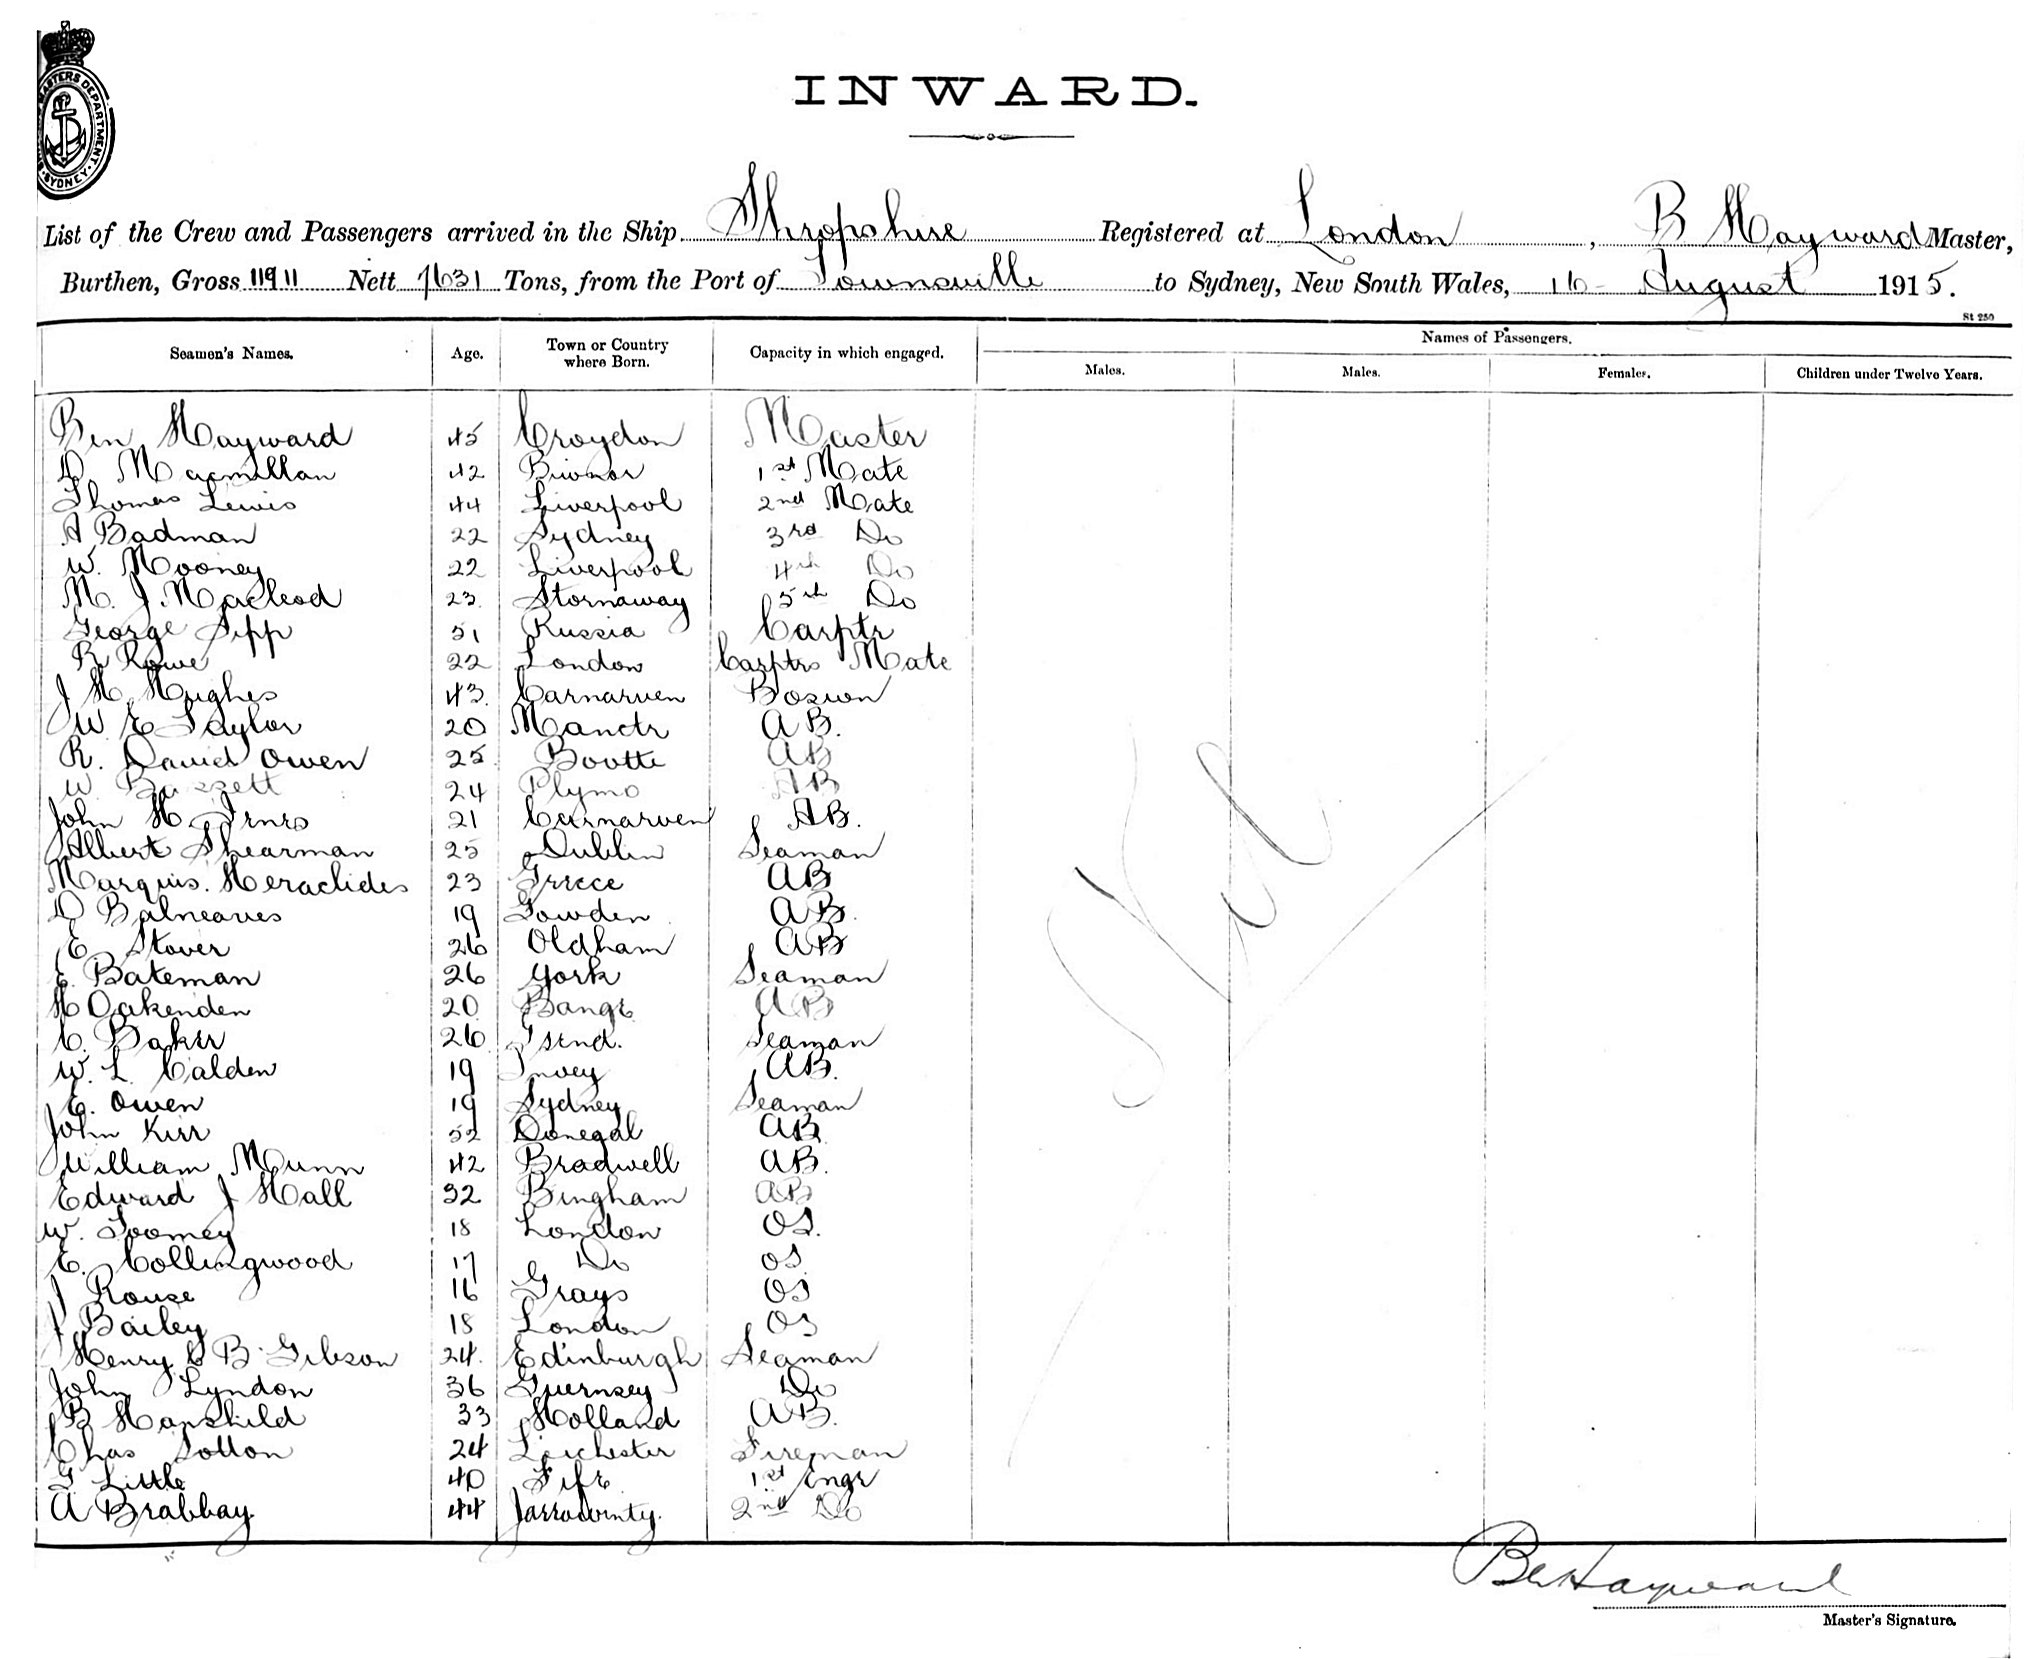 MASTERS DEPARTMENT
SYDNEY
INWARD.
List of the Crew and Passengers arrived in the Ship Shropshire Registered at London, B Hayward Master,
Burthen, Gross 11911 Nett 7631 Tons, from the Port of Townsville to Sydney, New South Wales, 16 August 1915.
St 250
Seamen's Names. Age. Town or Country where Born. Capacity in which engaged. Names of Passengers.
Males. Males. Females. Children under Twelve Years.
Ben Hayward 45 Croydon Master
D. Macmillan 42 1st Mate
Thomas Lewis 44 Liverpool 2nd Mate
A Badman 22 Sydney 3rd Do
W. Mooney 22 Liverpool 4th Do
M. J. Macleod 23 Stornaway 5th Do
George Sipp 51 Russia Carptr
R Rowe 22 London Carptrs Mate
J H Hughes 43 Carnarven Boswn
W E Taylor 20 Manctr AB.
R. David Owen 25 Bootte AB
W Bassett 24 Plymo AB
John H 21 Carnarven AB.
Albert Shearman 25 Dublin Seaman
Marquis. Heraclides 23 Greece AB
D Balneaves 19 Gowden AB.
E. Stover 26 Oldham AB
E. Bateman 26 York Seaman
H Oakenden 20 Bangr AB
C. Baker 26 Seaman
W. L. Calden 19 AB.
E. Owen 19 Sydney Seaman
John Kerr 52 Donegal AB
William Munn 42 Bradwell AB.
Edward J Hall 32 Bingham AB
W. Toomey 18 London OS.
E. Collingwood 17 Do OS
J Rouse 16 Grays OS
J Bailey 18 London OS
Henry C B Gibson 24 Edinburgh Seaman
John Lyndon 36 Guernsey Do
B Hanskild 33 Holland AB.
Chas Sotton 24 Leichester Fireman
G Little 40 Fife 1st Engr
A Brabbay 44 2nd Do
Nil
Ben Hayward
Master's Signature.